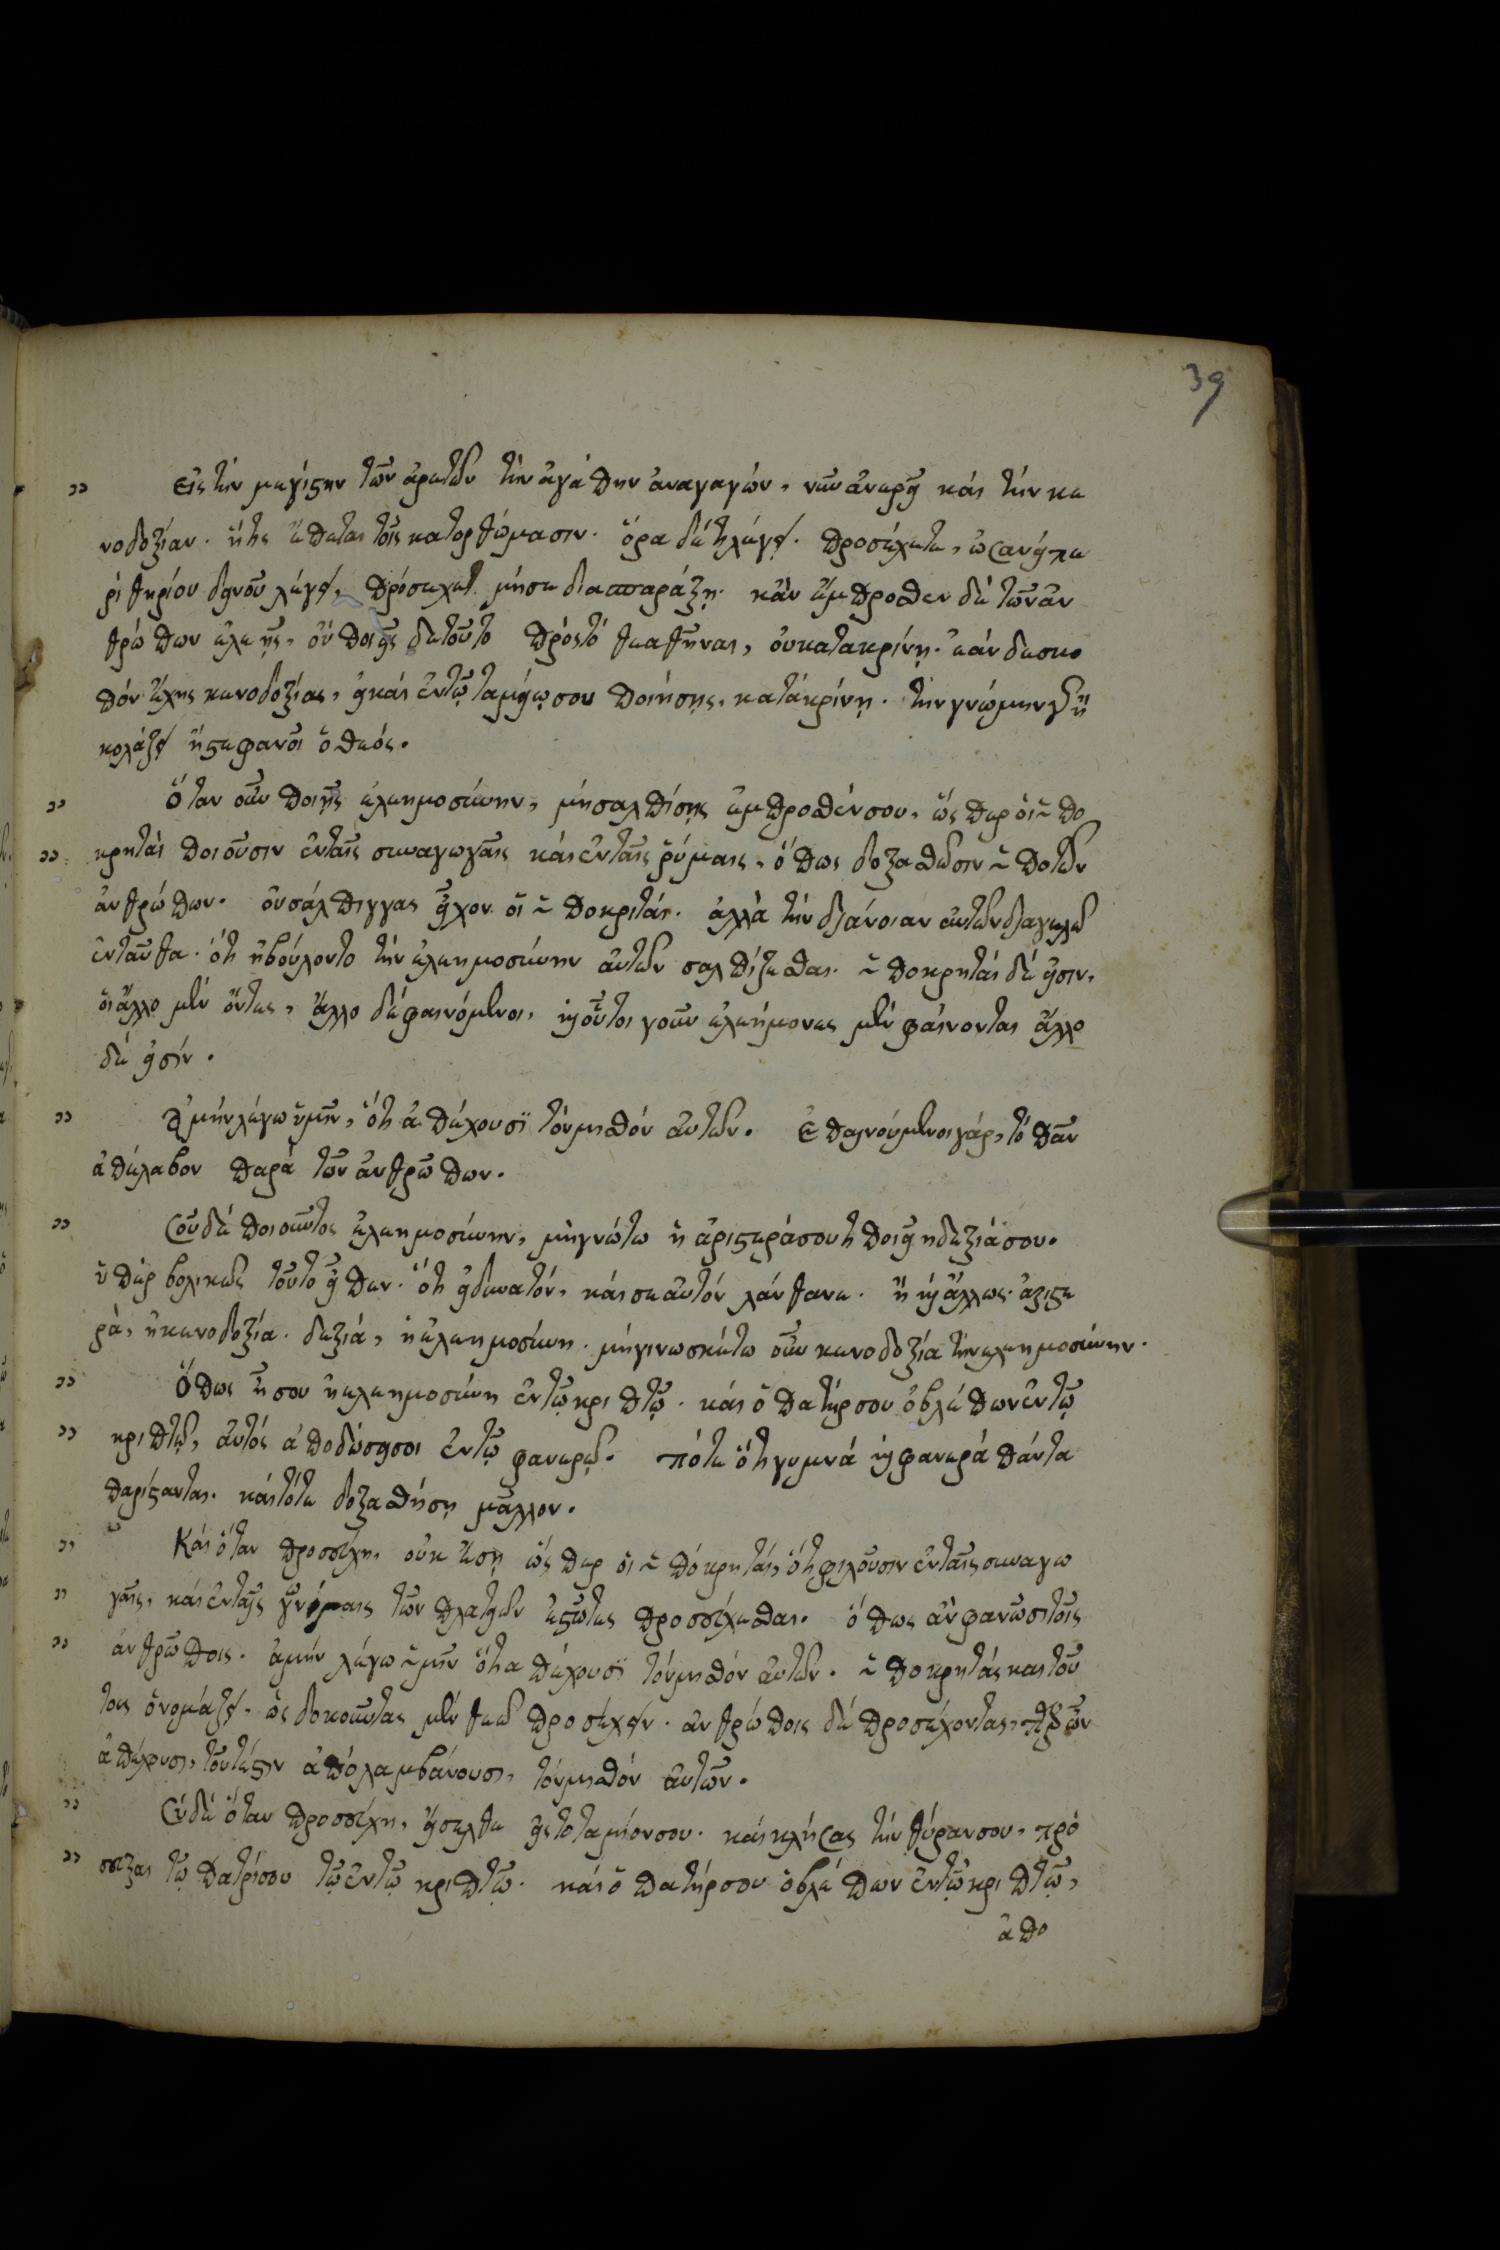 39
Εἰς τὴν μεγίστην τῶν ἀρετῶν τὴν ἀγάπην ἀναγαγών, νῦν ἀναιρεῖ καὶ τὴν κε
νοδοξίαν. ἥτις ἕπεται τοῖς κατορθώμασιν. ὅρα δὲ τί λέγει. προσέχετε, ὡσανεὶ πε
ρὶ θηρίου δεινοῦ λέγει, πρόσεχε μή σε διασπαράξῃ. κἂν ἔμπροσθεν δὲ τῶν ἀν
θρώπων ἐλεῇς, οὐ ποιεῖς δὲ τοῦτο πρὸς τὸ θεαθῆναι, οὐ κατακρίνῃ. ἐὰν δὲ σκο
πὸν ἔχῃς κενοδοξίας, εἰ καὶ ἐν τῷ ταμείῳ σου ποιήσῃς, κατακρίνῃ. τὴν γνώμην γὰρ ἢ
κολάζει ἢ στεφανοῖ ὁ θεός.
Ὅταν οὖν ποιῇς ἐλεημοσύνην, μὴ σαλπίσῃς ἔμπροσθέν σου, ὥσπερ οἱ ὑπο
κρηταὶ ποιοῦσιν ἐν ταῖς συναγωγαῖς καὶ ἐν ταῖς ῥύμαις, ὅπως δοξασθῶσιν ὑπὸ τῶν
ἀνθρώπων. οὐ σάλπιγγας εἶχον οἱ ὑποκριταί. ἀλλὰ τὴν διάνοιαν αὐτῶν διαγελᾷ
ἐνταῦθα. ὅτι ἠβούλοντο τὴν ἐλεημοσύνην αὐτῶν σαλπίζεσθαι. ὑποκρηταὶ δέ εἰσιν,
οἱ ἄλλο μὲν ὄντες, ἄλλο δὲ φαινόμενοι, καὶ οὗτοι γοῦν ἐλεήμονες μὲν φαίνονται ἄλλο
δέ εἰσίν.
Ἀμὴν λέγω ὑμῖν, ὅτι ἀπέχουσι τὸν μισθὸν αὐτῶν. ἐπαινούμενοι γάρ, τὸ πᾶν
ἀπέλαβον παρὰ τῶν ἀνθρώπων.
Σοῦ δὲ ποιοῦντος ἐλεημοσύνην, μὴ γνώτω ἡ ἀριστερά σου τί ποιεῖ ἡ δεξιά σου.
ὑπερβολικῶς τοῦτο εἶπεν. ὅτι εἰ δυνατόν, καὶ σεαυτὸν λάνθανε. ἢ καὶ ἄλλως. ἀριστε
ρά, ἡ κενοδοξία. δεξιά, ἡ ἐλεημοσύνη. μὴ γινωσκέτω οὖν κενοδοξία τὴν ἐλεημοσύνην.
Ὅπως ᾖ σου ἡ ἐλεημοσύνη ἐν τῷ κριπτῷ. καὶ ὁ πατήρ σου ὁ βλέπων ἐν τῷ
κριπτῷ, αὐτὸς ἀποδώσει σοι ἐν τῷ φανερῷ. πότε ὅτι γυμνὰ καὶ φανερὰ πάντα
παρίσταται. καὶ τότε δοξασθήσῃ μᾶλλον.
Καὶ ὅταν προσεύχῃ, οὐκ ἔσῃ ὥσπερ οἱ ὑπόκρηταί, ὅτι φιλοῦσιν ἐν ταῖς συναγω
γαῖς, καὶ ἐν ταῖς γωνίαις τῶν πλατειῶν ἑστῶτες προσεύχεσθαι. ὅπως ἂν φανῶσι τοῖς
ἀνθρώποις. ἀμὴν λέγω ὑμῖν ὅτι ἀπέχουσι τὸν μισθὸν αὐτῶν. ὑποκρητὰς καὶ τού
τους ὀνομάζει. ὡς δοκοῦντας μὲν θεῷ προσέχειν. ἀνθρώποις δὲ προσέχοντας, παρ' ὧν
ἀπέχουσι, τουτέστιν ἀπολαμβάνουσι, τὸν μισθὸν αὐτῶν.
Σὺ δὲ ὅταν προσεύχῃ, εἴσελθε εἰς τὸ ταμιόν σου. καὶ κλήσας τὴν θύραν σου, πρό
σευξαι τῷ πατρί σου τῷ ἐν τῷ κριπτῷ. καὶ ὁ πατήρ σου ὁ βλέπων ἐν τῷ κριπτῷ,
ἀπο